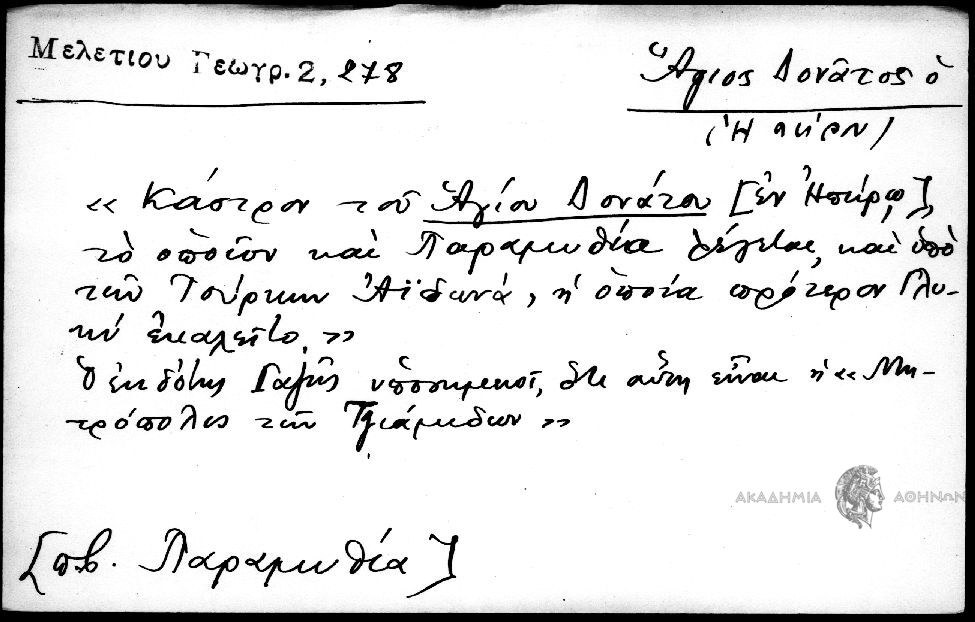 Μελετιου Γεωγρ. 2, 278
Ἅγιος Δονᾶτος ὁ
(Ἠπειρ)
« Κάστρον τοῦ Ἁγίου Δονάτου [ἐν Ἠπείρῳ],
τὸ ὁποῖον καὶ Παραμυθία λέγεται, καὶ ὑπὸ
τῶν Τούρκων Ἀϊδωνά, ἡ ὁποία πρότερον Γλυ-
κύ ἐκαλεῖτο. »
Ὁ ἐκδότης Γαζῆς ὑποσημειοῖ, ὅτι αὕτη εἶναι ἡ « Μη-
τρόπολις τῶν Τζιάμιδων »
ΑΚΑΔΗΜΙΑ ΑΘΗΝΩΝ
[πβ. Παραμυθία]